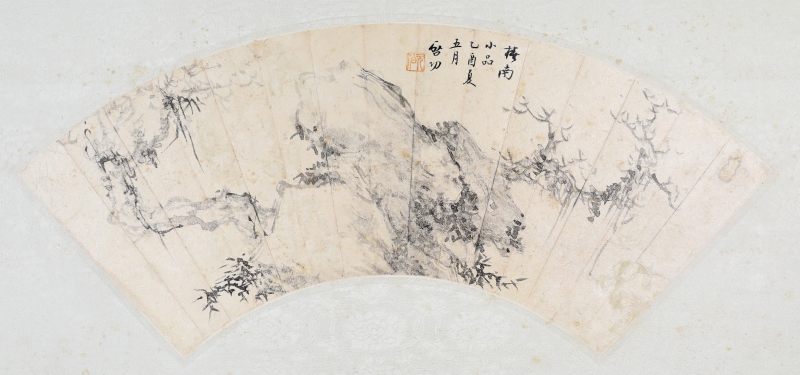 梅南
小品
乙酉夏
五月
啓功